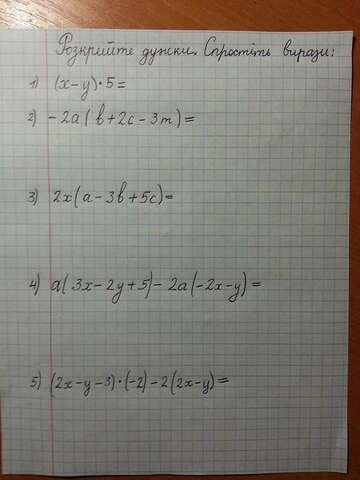 Розкрийте дужки. Спростіть вирази:
1) (x-y)·5=
2) -2a(b+2c-3m)=
3) 2x(a-3b+5c)=
4) a(3x-2y+5)-2a(-2x-y)=
5) (2x-y-3)·(-2)-2(2x-y)=